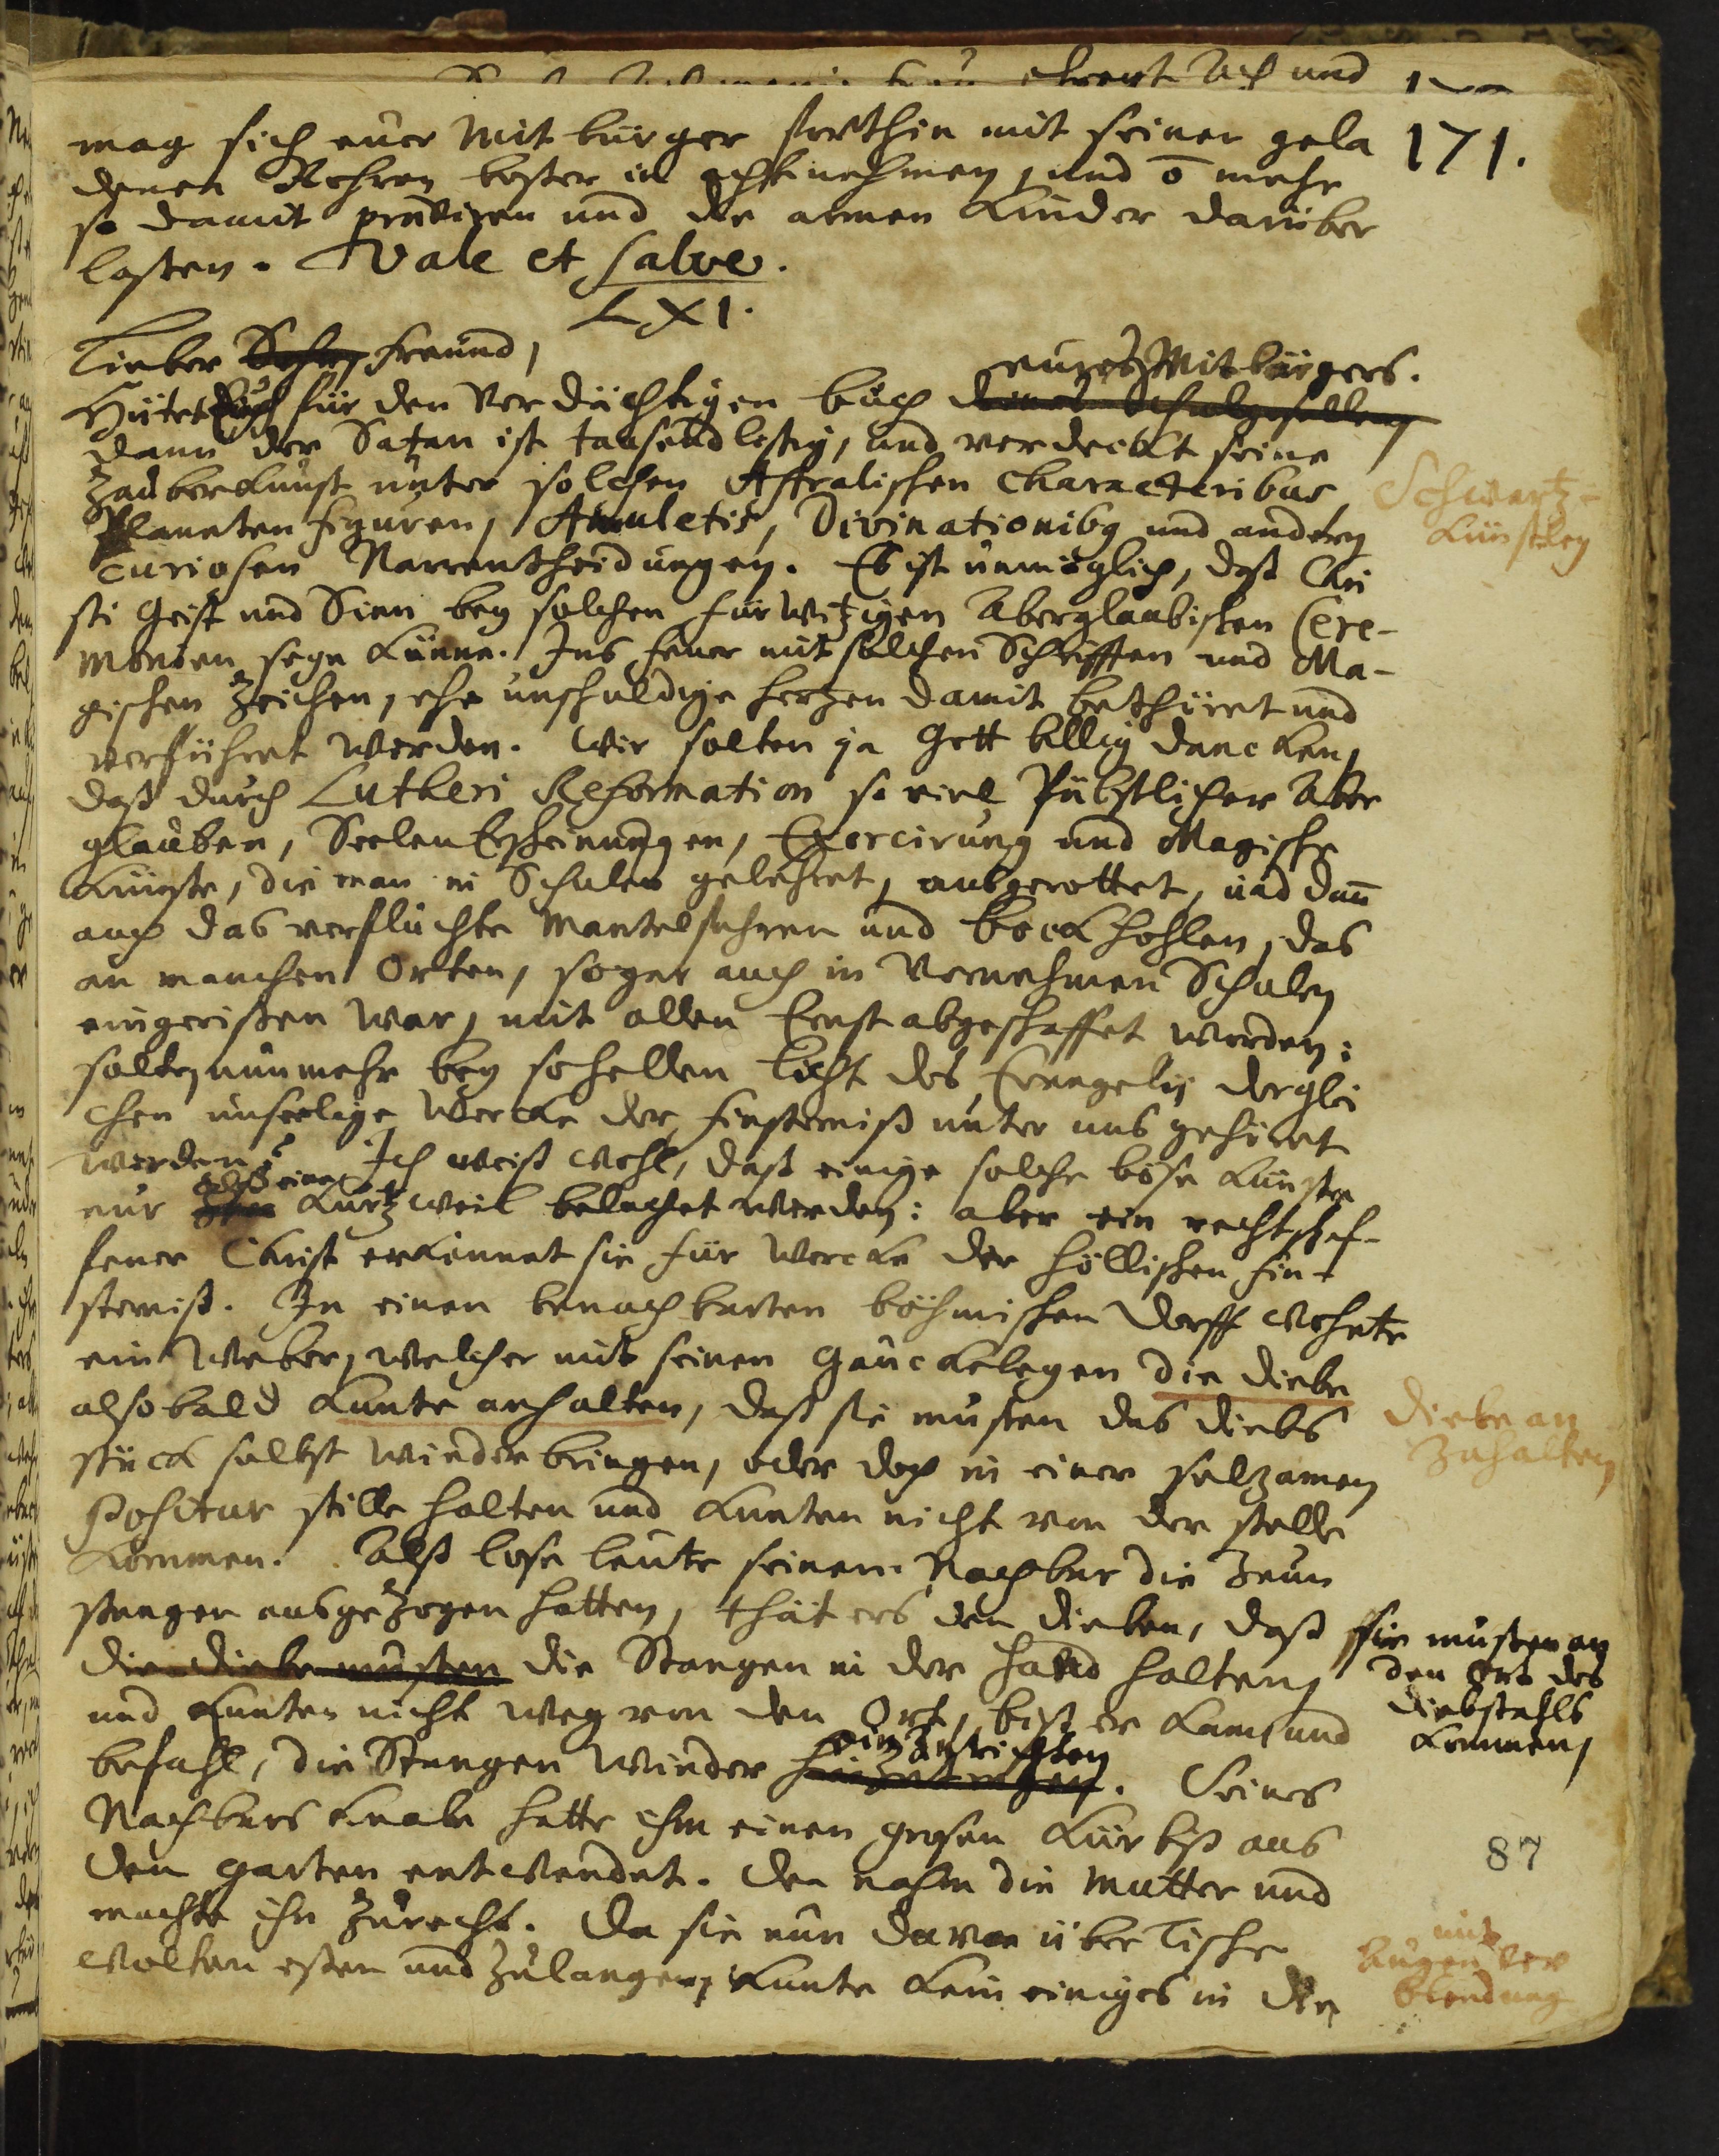 171.
mag sich euer Mitbürger forthin mit seinen gela
denen Rohren beßer in acht nehmen, und õ mehr
so damit praviren und die armen Kinder darüber
laßen. Vale et salve.
LXI.
Lieber Freund,
eures Mitbürgers.
Hütet Euch für den verdächtigen buch deines Schulgesellen
dann der Satan ist tausendlistig, und verdeckt seine
Zauberkunst unter solchen Astralischen Characteribus,
Schwartz-
Künstley
Planeten figuren, Amuletis, Divinationibq und andern
curiosen Narrentheidungen. Es ist unmöglich, daß Chri
sti Geist und Sinn bey solchen fürwitzigen Aberglaubischen Cere-
monien seyn könne. Ins feuer mit solchen Schrifften und Ma-
gischen Zeichen, ehe unschuldige hertzen damit bethöret und
verführet werden. Wir solten ja Gott billig dancken,
daß durch Lutheri Reformation so viel Päbstlicher Aber
glauben, Seelen Erscheinungen, Exorcirung und Magische
Künste, die man in Schulen gelehret, ausgerottet, und dañ
auch das verfluchte Mantelfahren und bockhohlen, das
an manchen Orten, sogar auch in Vornehmen Schulen
eingerißen war, mit allen Ernst abgeschaffet worden:
solten nunmehr bey so hellen licht des Evangelij derglei
chen unseelige Wercke der finsterniß unter uns gehöret
werden? Ich weiß wohl, daß einige solche böse Künste
alß eine
nur Kurtzweil belachet werden: aber ein rechtschaf-
fener Christ erkennet sie für Wercke der höllischen fin-
sterniß. In einen benachbarten böhmischen Dorff wohnte
ein Weber, welcher mit seinen Gauckeleyen die diebe
alsobald kunte anhalten, daß sie musten das diebs
diebe an
zuhalten
stück selbst wieder bringen, oder doch in einer selzamen
Positur stille halten und kunten nicht von der stelle
kommen. Alß lose leute seinem Nachbar die Zaun
stangen ausgezogen hatten, thät ers den dieben, daß
sie musten an
den Ort des
diebstahls
kommen,
die diebe musten die Stangen in der hand halten,
und kunten nicht weg von den Ort, biß er kam und
einzurichten
befahl, die Stangen wieder. Seines
Nachbars knabe hatte ihm einen grosen Kürbiß aus
den garten entwendet. Den nahm die Mutter und
87
machte ihn zurecht. Da sie nun davon über Tische
mit
Augen ver
blendung
wolten eßen und zulangen, kunte kein einiges in die